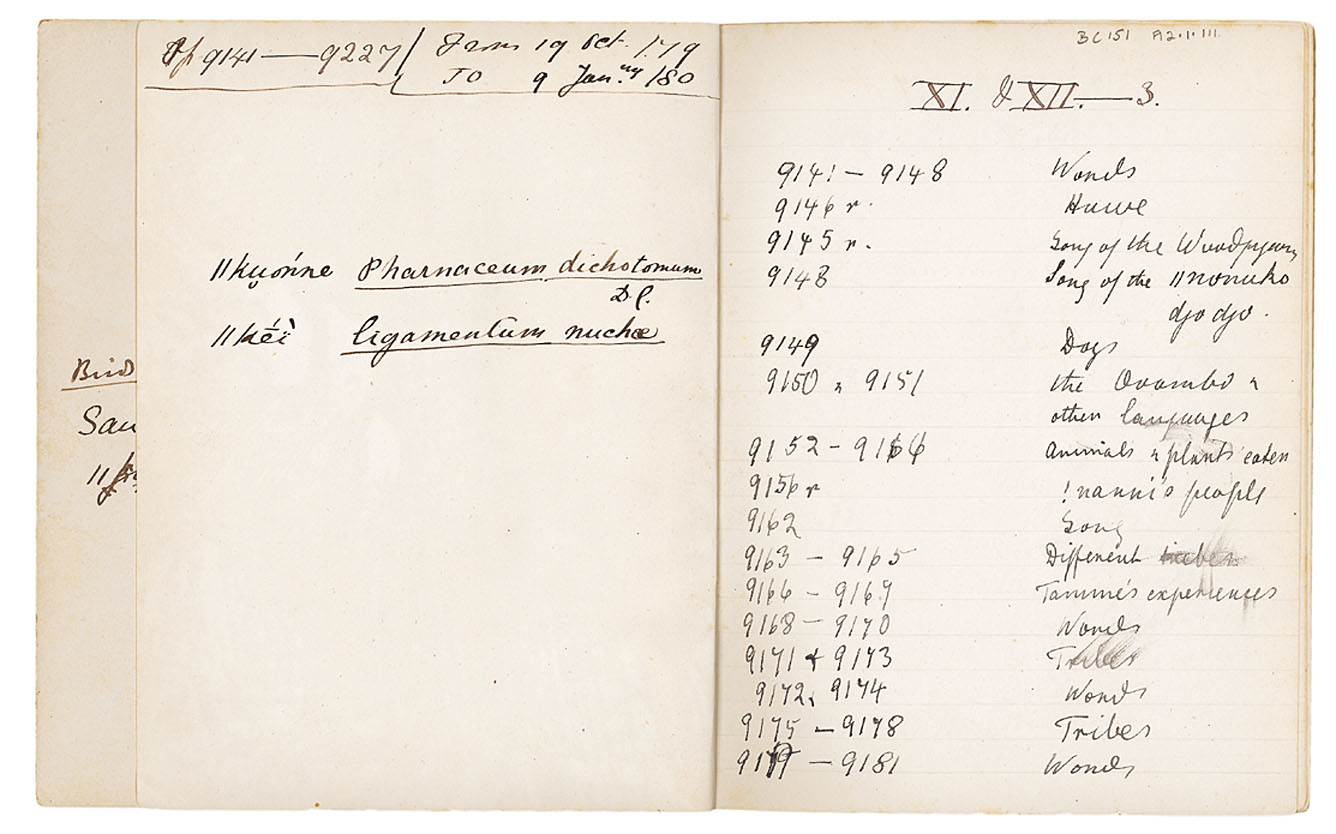 Pp 9141—9227 / From 19 Oct. /79
TO 9 Jan.ry /80
ǁku̯ónne Pharnaceum dichotomum
D.C.
ǁkéï ligamentum nuchæ
Bird
Sau
BC 151 A2.1.111
XI. & XII.—3.
9141 – 9148 Words
9146 r. Huwe
9145 r. Song of the
9148 Song of the ǁnonuko
djo djo.
9149 Dogs
9150 & 9151 the Ovambo &
other languages
9152 – 9166 Animals & plants eaten
9156 r !nanni's people
9162 Song
9163 – 9165 Different tribes
9166 – 9169 Tamme's experiences
9168 – 9170 Words
9171 & 9173 Tribes
9172, 9174 Words
9175 – 9178 Tribes
9179 – 9181 Words